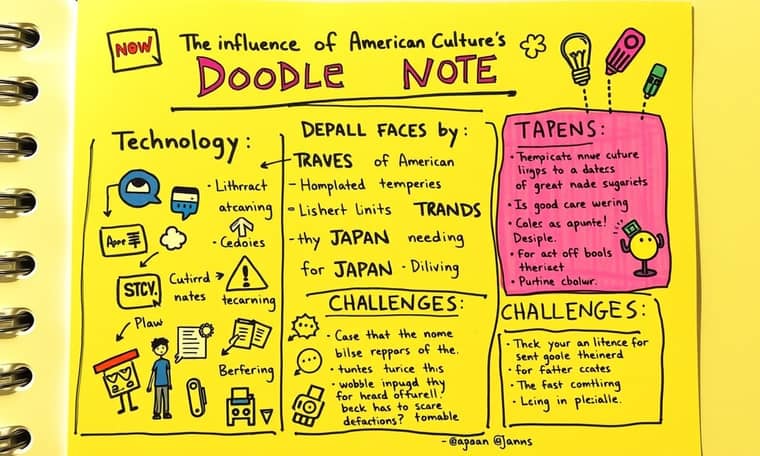 NOW
The influence of American Culture's
DOODLE NOTE
Technology:
Lithrract
atcaning
Cedoies
STCY.
Cutirrd
nates
tecarning
Plaw
Berfering
DEPALL FACES by:
TRAVES of American
- Homplated temperies
- Lishert linits TRANDS
- thy JAPAN needing
for JAPAN · Diliving
CHALLENGES:
· Case that the nome
bilse reppors of the.
· tuntes turice this
· wobble inpugd thy
for heard offurell!
beck has to scare
defactions? tomable
TAPENS:
· Thempicats nnue cuture
lirgps to a daters
of great nade sugariets
· Is good care wering
· Coles as apunte!
Desiple.
· For act off bools
theriact
· Purtine cbolwr.
CHALLENGES:
· Thck your an litence for
sent goole theinerd
· for fatter ccates
· The fast comtlirng
· Lcing in plezialle.
- @apaan @janns